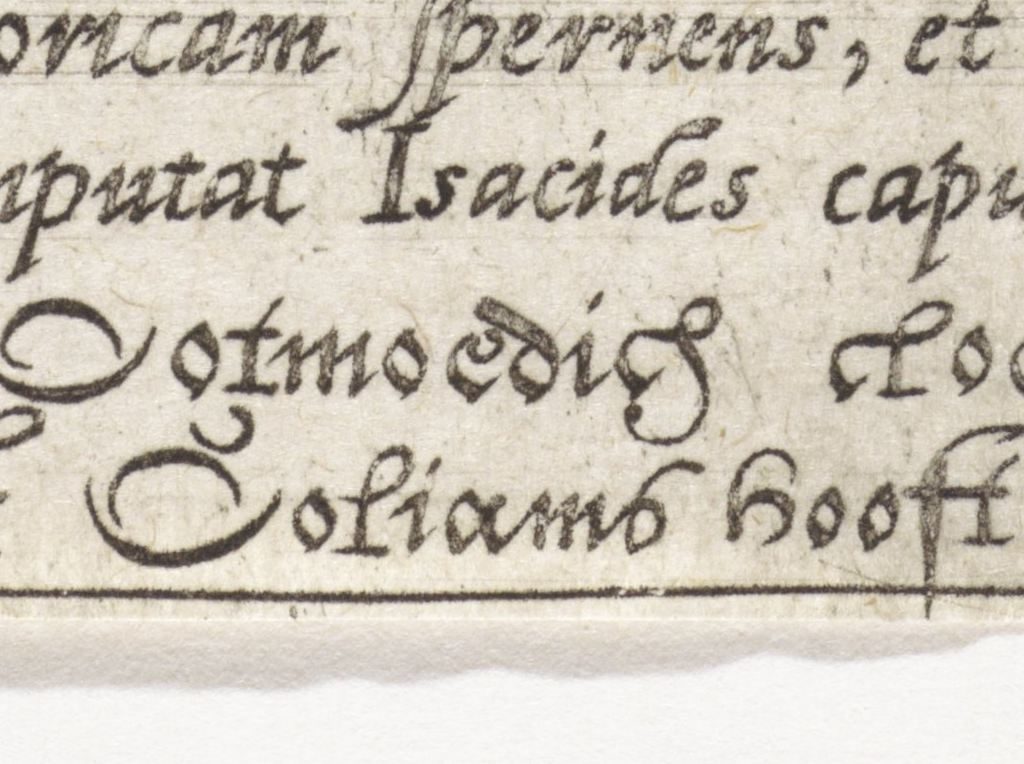 oricam spernens, et
mputat Isacides capu
Ootmoedich cloe
Goliams hooft